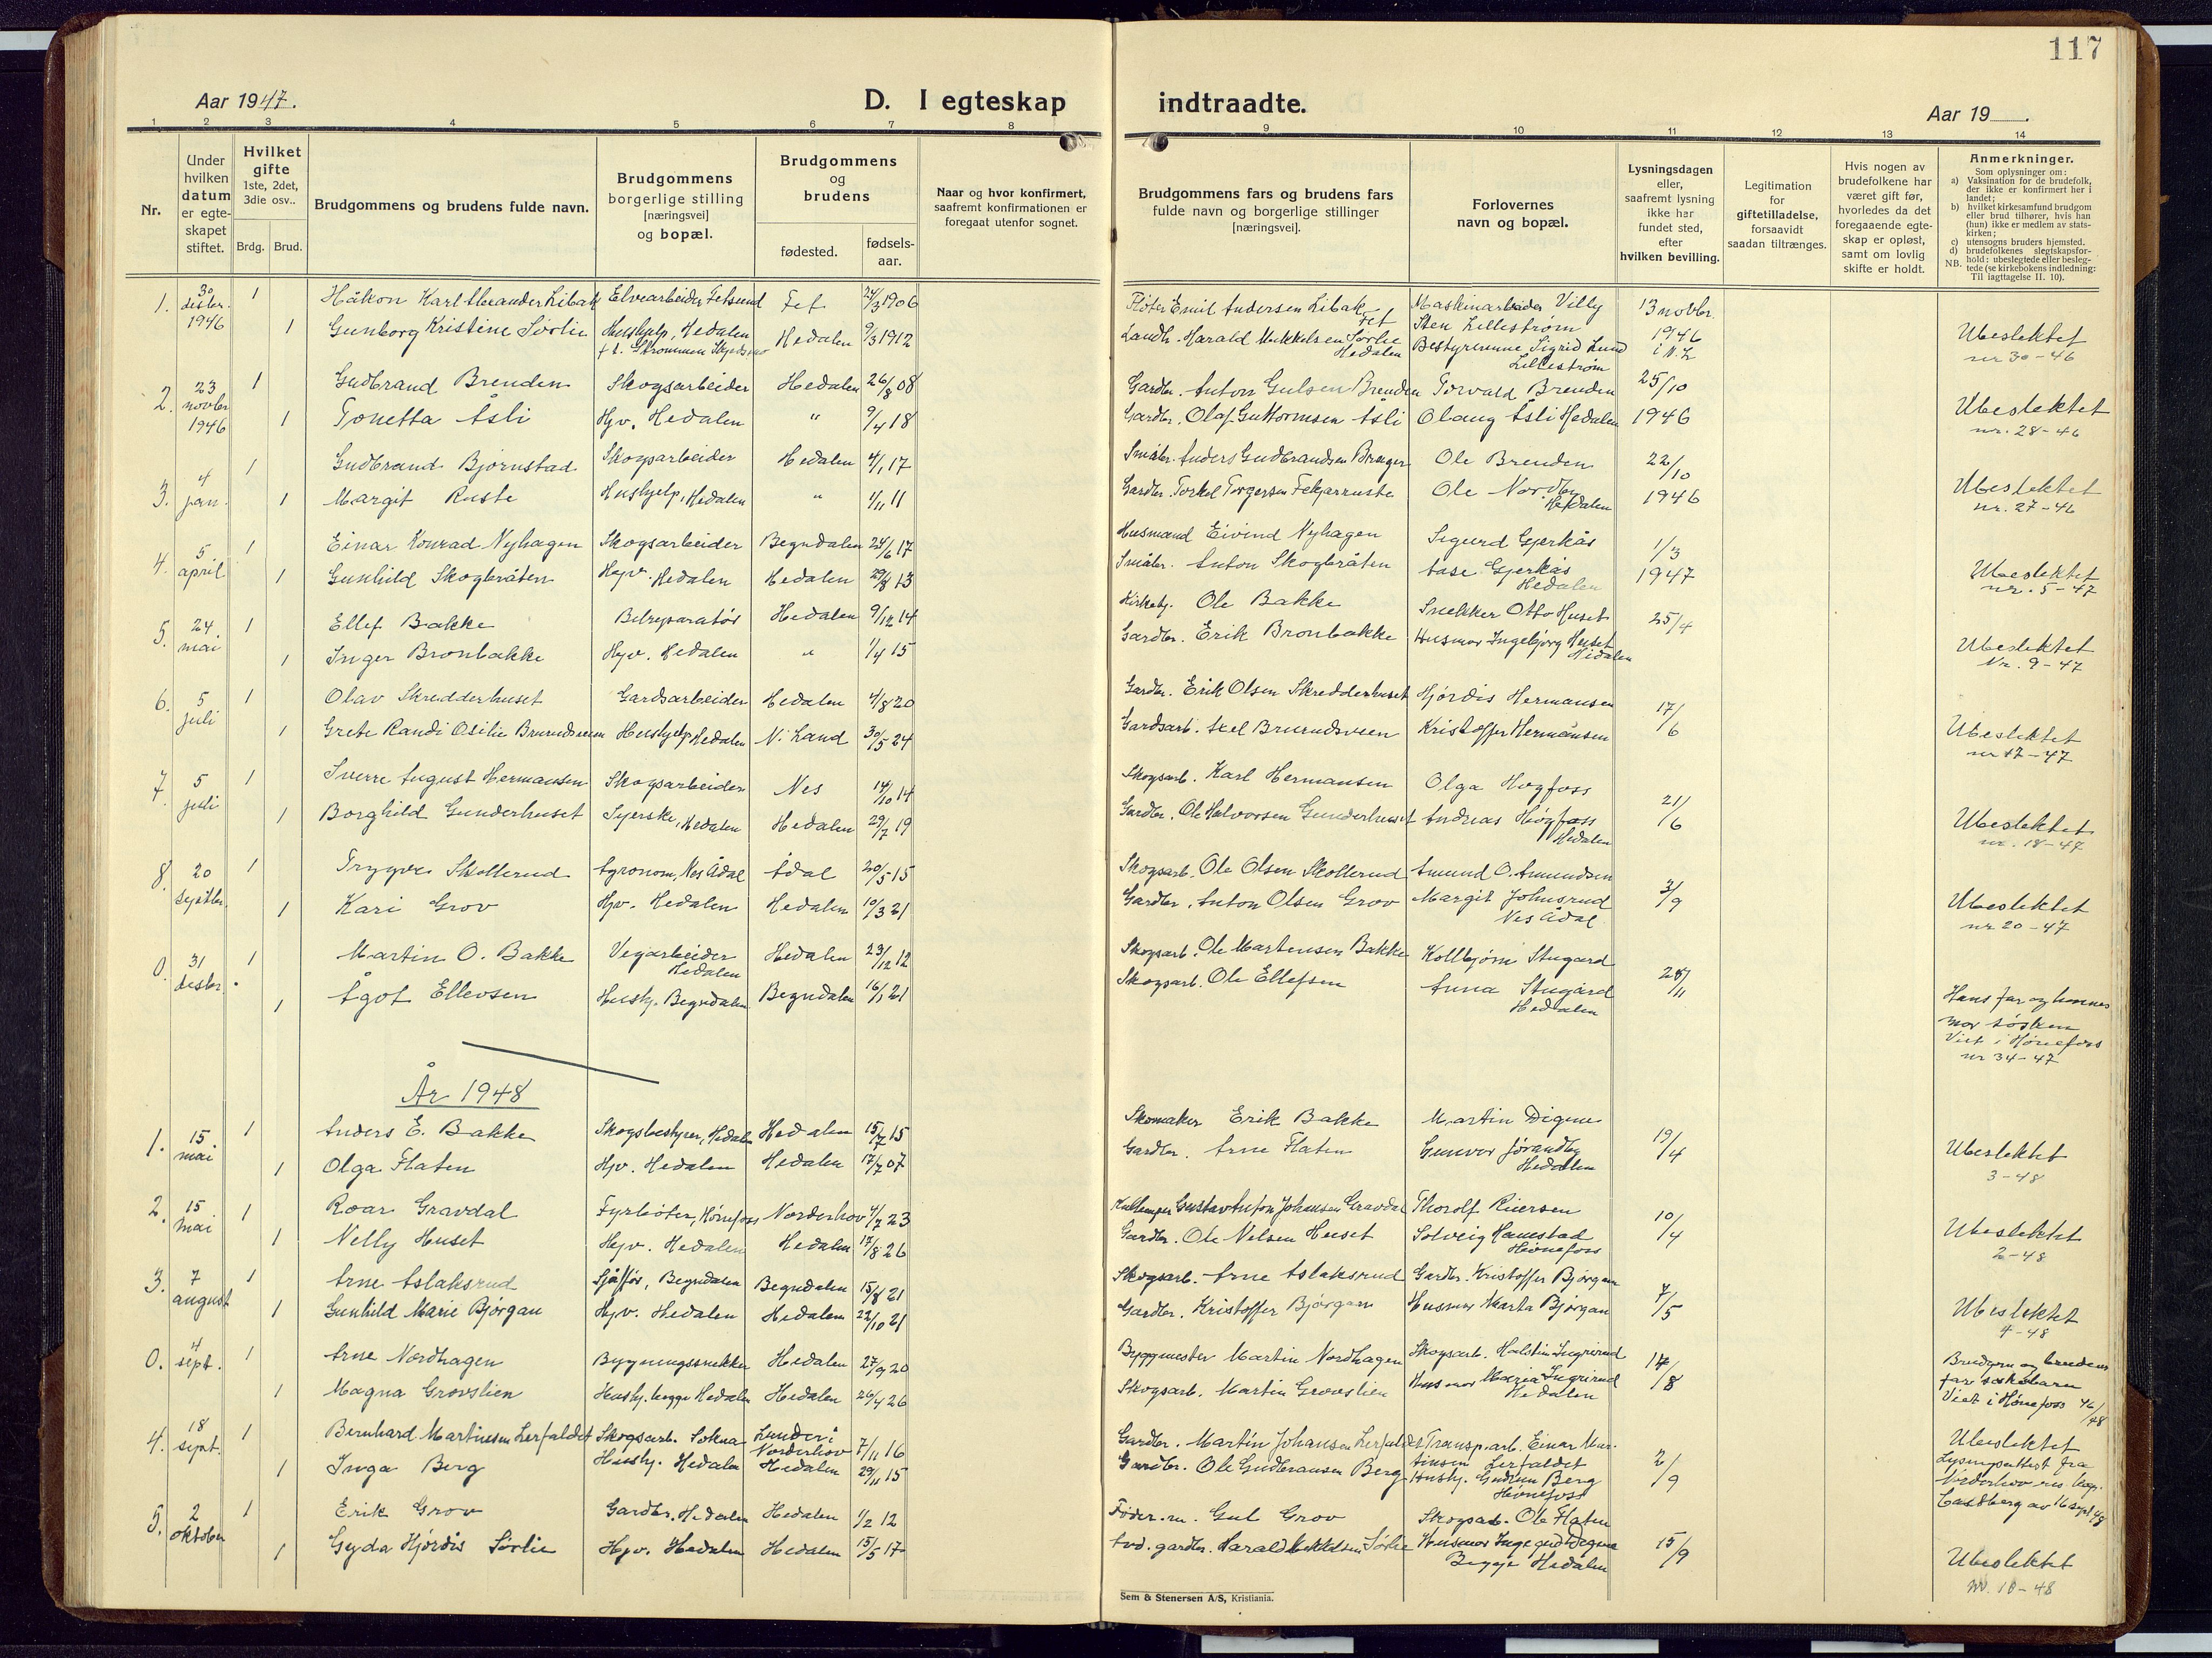 117
Aar 1947.
D. I egteskap indtraadte.
Aar 19 .
1 2 3 4 5 6 7 8 9 10 11 12 13 14
Nr.
Under hvilken datum er egte-skapet stiftet.
Hvilket gifte
1ste, 2det, 3die osv..
Brdg. Brud.
Brudgommens og brudens fulde navn.
Brudgommens borgerlige stilling [næringsvei] og bopæl.
Brudgommens og brudens
fødested.
fødsels-aar.
Naar og hvor konfirmert, saafremt konfirmationen er foregaat utenfor sognet.
Brudgommens fars og brudens fars fulde navn og borgerlige stillinger [næringsvei].
Forlovernes navn og bopæl.
Lysningsdagen eller, saafremt lysning ikke har fundet sted, efter hvilken bevilling.
Legitimation for giftetilladelse, forsaavidt saadan tiltrænges.
Hvis nogen av brudefolkene har været gift før, hvorledes da det foregaaende egte-skap er opløst, samt om lovlig skifte er holdt.
Anmerkninger.
Som oplysninger om:
a) Vaksination for de brudefolk, der ikke er konfirmert her i landet;
b) hvilket kirkesamfund brudgom eller brud tilhører, hvis han (hun) ikke er medlem av stats-kirken;
c) utensogns bruders hjemsted.
d) brudefolkenes slegtskapsfor-hold: ubeslegtede eller besleg-tede (se kirkebokens indledning: Til iagttagelse II. 10).
NB.
1. 30 desbr. 1946 1 Håkon Karl Alexander Libak Elvearbeider Fetsund Fet 24/3 1906 Fløter Emil Andersen Libak Fet Maskinarbeider Villy Sten Lillestrøm 13 novbr. 1946 i N.L
1 Gunborg Kristine Sørlie Hushjelp, Hedalen Hedalen 9/3 1912 Landh. Harald Mikkelsen Sørlie Hedalen Bestyrerinne Sigrid Lund Lillestrøm Ubeslektet nr 30-46
2. 23 novbr 1946 1 Gudbrand Brenden Skogsarbeider Hedalen 26/8 08 Gardbr. Anton Gulsen Brenden Torvald Brenden 25/10
1 Tonetta Åsli Hjv. Hedalen " 9/4 18 Gardbr. Olaf Guttormsen Åsli Olaug Åsli Hedalen 1946 Ubeslektet nr. 28-46
3. 4 jan. 1 Gudbrand Bjørnstad Skogsarbeider Hedalen 4/1 17 Småbr. Anders Gudbrandsen Ole Brenden 22/10
1 Margit Ruste Hushjelp, Hedalen " 4/11 11 Gardbr. Torkel Torgersen Fekjarruste Ole Nordby Hedalen 1946 Ubeslektet nr. 27-46
4. 5 april 1 Einar Konrad Nyhagen Skogsarbeider Begndalen 24/6 17 Husmand Eivind Nyhagen Sigurd Gjerkås 1/3
1 Gunhild Skogbråten Hjv. Hedalen Hedalen 29/8 13 Småbr. Anton Skogbråten Aase Gjerkås Hedalen 1947 Ubeslektet nr. 5-47
5. 24. mai 1 Ellef Bakke Bilreparatør Hedalen 9/12 14 Kirketj. Ole Bakke Snekker Otto Huset 25/4
1 Inger Bronbakke Hjv. Hedalen " 1/4 15 Gardbr. Erik Bronbakke Husmor Ingebjørg Huset Hedalen Ubeslektet Nr. 9-47
6. 5 juli 1 Olav Skredderhuset Gardsarbeider Hedalen 4/8 20 Gardbr. Erik Olsen Skredderhuset Hjørdis Hermansen 17/6
1 Grete Randi Osilie Brurudsveen Hushjelp Hedalen N. Land 30/5 24 Gardsarb. Axel Brurudsveen Kristoffer Hermansen Ubeslektet nr 17-47
7. 5 juli 1 Sverre August Hermansen Skogsarbeider Nes 14/10 14 Skogsarb. Karl Hermansen Olga Høgfoss 21/6
1 Borghild Gunderhuset Syerske, Hedalen Hedalen 29/7 19 Gardbr. Ole Halvorsen Gunderhuset Andreas Høgfoss Hedalen Ubeslektet nr. 18-47
8. 20 septbr. 1 Trygve Skollerud Agronom, Nes Ådal Ådal 20/5 15 Skogsarb. Ole Olsen Skollerud Amund O. Amundsen 3/9
1 Kari Grov Hjv. Hedalen Hedalen 10/3 21 Gardbr. Anton Olsen Grov Margit Johnsrud Nes Ådal Ubeslektet nr 20-47
0. 31 desbr. 1 Martin O. Bakke Vegarbeider Hedalen Hedalen 23/12 12 Skogsarb. Ole Martensen Bakke Kolbjørn Stugard 28/11
1 Ågot Ellevsen Hushj. Begndalen Begndalen 16/1 21 Skogsarb. Ole Ellefsen Anna Stugård Hedalen Hans far og hennes mor søsken Viet i Hønefoss nr 34-47
År 1948
1. 15. mai 1 Anders E. Bakke Skogsbestyrer, Hedalen Hedalen 15/7 15 Skomaker Erik Bakke Martin Digene 19/4
1 Olga Flaten Hjv. Hedalen Hedalen 17/7 07 Gardbr. Arne Flaten Gunvor Jørandby Hedalen Ubeslektet 3-48
2. 15 mai 1 Roar Gravdal Fyrbøter, Hønefoss Norderhov 4/7 23 Gustav Anton Johansen Gravdal Thorolf Riersen 10/4
1 Nelly Huset Hjv. Hedalen Hedalen 17/8 26 Gardbr. Ole Nilsen Huset Solveig Hamstad Hønefoss Ubeslektet 2-48
3. 7 august 1 Arne Aslaksrud Sjåfør, Begndalen Begndalen 15/8 21 Skogsarb. Arne Aslaksrud Gardbr. Kristoffer Bjørgan 7/5
1 Gunhild Marie Bjørgan Hjv. Hedalen Hedalen 22/10 21 Gardbr. Kristoffer Bjørgan Husmor Marta Bjørgan Ubeslektet 4-48
0. 4 sept. 1 Arne Nordhagen Bygningssnekker Hedalen 27/9 20 Byggmester Martin Nordhagen Skogsarb. Halstin Ingrirud 14/8
1 Magna Grovslien Hushj. begge Hedalen Hedalen 26/4 26 Skogsarb. Martin Grovslien Husmor Maria Ingrirud Hedalen Brudgom og brudens far søskebarn Viet i Hønefoss 46/48
4. 18 sept. 1 Bernhard Martinsen Lerfaldet Skogsarb. Sokna Lunder i Norderhov 7/11 16 Gardbr. Martin Johansen Lerfaldet Transp.arb. Einar Martinsen Lerfaldet 2/9
1 Inga Berg Hushj. Hedalen Hedalen 29/11 15 Gardbr. Ole Gudbransen Berg Hushj. Gudrun Berg Hønefoss Ubeslektet Lysingsattest fra Norderhov res. kap. Castberg av 16 sept 48
5. 2 oktober 1 Erik Grov Gardbr. Hedalen Hedalen 1/2 12 Gul Grov Skogsarb. Ole Flaten 15/9
1 Gyda Hjørdis Sørlie Hjv. Hedalen Hedalen 15/5 17 gardbr. Harald Mikkelsen Sørlie Husmor Ingegerd Degene Begge Hedalen Ubeslektet nr. 10-48
Sem & Stenersen A/S, Kristiania.